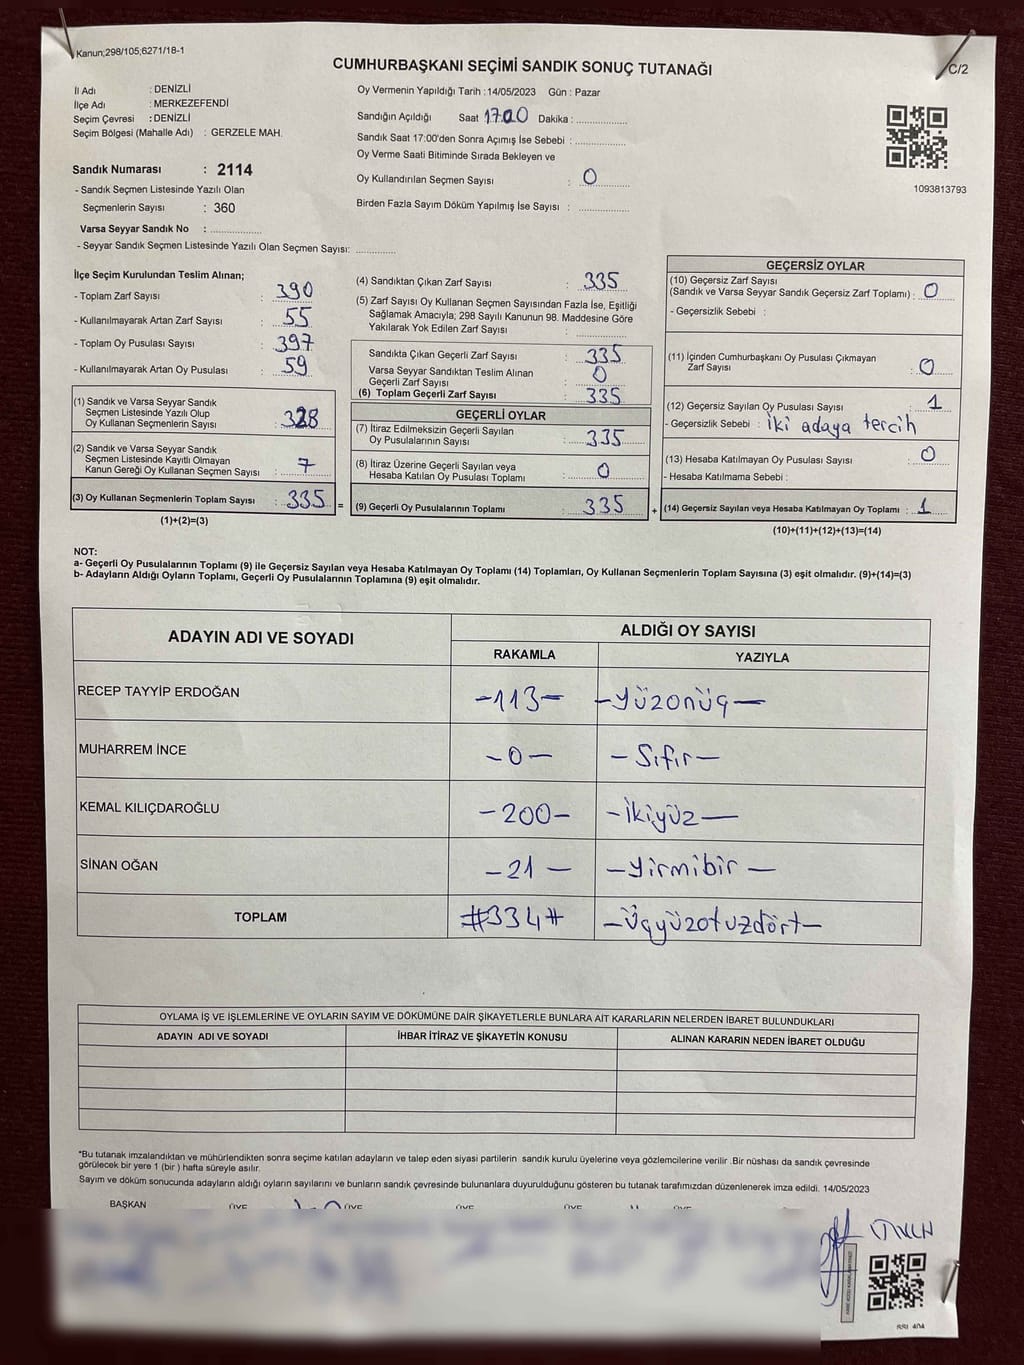 Kanun;298/105;6271/18-1
C/2
CUMHURBAŞKANI SEÇİMİ SANDIK SONUÇ TUTANAĞI
İl Adı : DENİZLİ
İlçe Adı : MERKEZEFENDİ
Seçim Çevresi : DENİZLİ
Seçim Bölgesi (Mahalle Adı) : GERZELE MAH.
Sandık Numarası : 2114
- Sandık Seçmen Listesinde Yazılı Olan
Seçmenlerin Sayısı : 360
Varsa Seyyar Sandık No : ................
- Seyyar Sandık Seçmen Listesinde Yazılı Olan Seçmen Sayısı: ............
Oy Vermenin Yapıldığı Tarih : 14/05/2023 Gün : Pazar
Sandığın Açıldığı Saat 17.00 Dakika : ...............
Sandık Saat 17:00'den Sonra Açımış İse Sebebi : ...............
Oy Verme Saati Bitiminde Sırada Bekleyen ve
Oy Kullandırılan Seçmen Sayısı : 0
Birden Fazla Sayım Döküm Yapılmış İse Sayısı : ...............
1093813793
İlçe Seçim Kurulundan Teslim Alınan;
- Toplam Zarf Sayısı : 390
- Kullanılmayarak Artan Zarf Sayısı : 55
- Toplam Oy Pusulası Sayısı : 397
- Kullanılmayarak Artan Oy Pusulası : 59
(1) Sandık ve Varsa Seyyar Sandık
Seçmen Listesinde Yazılı Olup
Oy Kullanan Seçmenlerin Sayısı : 328
(2) Sandık ve Varsa Seyyar Sandık
Seçmen Listesinde Kayıtlı Olmayan
Kanun Gereği Oy Kullanan Seçmen Sayısı : 7
(3) Oy Kullanan Seçmenlerin Toplam Sayısı : 335 =
(1)+(2)=(3)
(4) Sandıktan Çıkan Zarf Sayısı : 335
(5) Zarf Sayısı Oy Kullanan Seçmen Sayısından Fazla İse, Eşitliği
Sağlamak Amacıyla; 298 Sayılı Kanunun 98. Maddesine Göre
Yakılarak Yok Edilen Zarf Sayısı : ...............
Sandıkta Çıkan Geçerli Zarf Sayısı : 335
Varsa Seyyar Sandıktan Teslim Alınan
Geçerli Zarf Sayısı : 0
(6) Toplam Geçerli Zarf Sayısı : 335
GEÇERLİ OYLAR
(7) İtiraz Edilmeksizin Geçerli Sayılan
Oy Pusulalarının Sayısı : 335
(8) İtiraz Üzerine Geçerli Sayılan veya
Hesaba Katılan Oy Pusulası Toplamı : 0
(9) Geçerli Oy Pusulalarının Toplamı : 335 +
GEÇERSİZ OYLAR
(10) Geçersiz Zarf Sayısı
(Sandık ve Varsa Seyyar Sandık Geçersiz Zarf Toplamı) : 0
- Geçersizlik Sebebi :
(11) İçinden Cumhurbaşkanı Oy Pusulası Çıkmayan
Zarf Sayısı : 0
(12) Geçersiz Sayılan Oy Pusulası Sayısı : 1
- Geçersizlik Sebebi : İki adaya tercih
(13) Hesaba Katılmayan Oy Pusulası Sayısı : 0
- Hesaba Katılmama Sebebi :
(14) Geçersiz Sayılan veya Hesaba Katılmayan Oy Toplamı : 1
(10)+(11)+(12)+(13)=(14)
NOT:
a- Geçerli Oy Pusulalarının Toplamı (9) ile Geçersiz Sayılan veya Hesaba Katılmayan Oy Toplamı (14) Toplamları, Oy Kullanan Seçmenlerin Toplam Sayısına (3) eşit olmalıdır. (9)+(14)=(3)
b- Adayların Aldığı Oyların Toplamı, Geçerli Oy Pusulalarının Toplamına (9) eşit olmalıdır.
ADAYIN ADI VE SOYADI
ALDIĞI OY SAYISI
RAKAMLA YAZIYLA
RECEP TAYYİP ERDOĞAN -113- -Yüzonüç-
MUHARREM İNCE -0- -Sıfır-
KEMAL KILIÇDAROĞLU -200- -İkiyüz-
SİNAN OĞAN -21- -Yirmibir-
TOPLAM #334# -Üçyüzotuzdört-
OYLAMA İŞ VE İŞLEMLERİNE VE OYLARIN SAYIM VE DÖKÜMÜNE DAİR ŞİKAYETLERLE BUNLARA AİT KARARLARIN NELERDEN İBARET BULUNDUKLARI
ADAYIN ADI VE SOYADI İHBAR İTİRAZ VE ŞİKAYETİN KONUSU ALINAN KARARIN NEDEN İBARET OLDUĞU
*Bu tutanak imzalandıktan ve mühürlendikten sonra seçime katılan adayların ve talep eden siyasi partilerin sandık kurulu üyelerine veya gözlemcilerine verilir .Bir nüshası da sandık çevresinde
görülecek bir yere 1 (bir ) hafta süreyle asılır.
Sayım ve döküm sonucunda adayların aldığı oyların sayılarını ve bunların sandık çevresinde bulunanlara duyurulduğunu gösteren bu tutanak tarafımızdan düzenlenerek imza edildi. 14/05/2023
BAŞKAN ÜYE ÜYE ÜYE ÜYE ÜYE